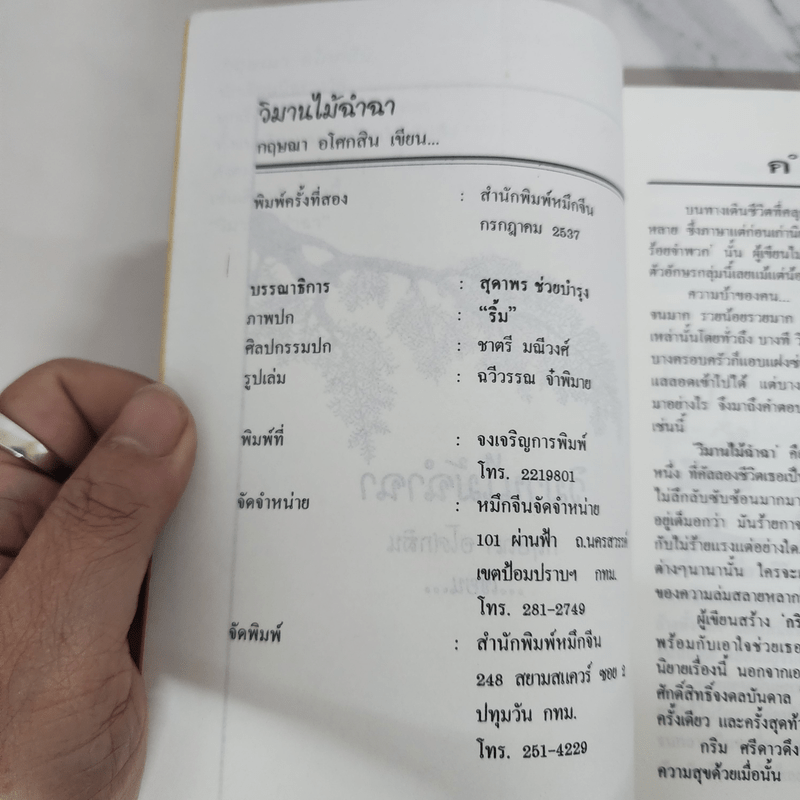 วิมานไม้ฉำฉา
กฤษณา อโศกสิน เขียน...
พิมพ์ครั้งที่สอง : สำนักพิมพ์หมึกจีน
กรกฎาคม 2537
บรรณาธิการ : สุดาพร ช่วยบำรุง
ภาพปก : “ริ้ม”
ศิลปกรรมปก : ชาตรี มณีวงศ์
รูปเล่ม : ฉวีวรรณ จ๋าพิมาย
พิมพ์ที่ : จงเจริญการพิมพ์
โทร. 2219801
จัดจำหน่าย : หมึกจีนจัดจำหน่าย
101 ผ่านฟ้า ถ.นครสวรรค์
เขตป้อมปราบฯ กทม.
โทร. 281-2749
จัดพิมพ์ : สำนักพิมพ์หมึกจีน
248 สยามสแควร์ ซอย 2
ปทุมวัน กทม.
โทร. 251-4229
บนทางเดินชีวิตที่
หลาย ซึ่งภาษาแต่ก่อนเก่า
ร้อยจำพวก' นั้น ผู้เขียน
ตัวอักษรกลุ่มนี้เลยแม้แต่
ความบ้าของคน...
จนมาก รวยน้อยรวยมาก
เหล่านั้นโดยทั่วถึง บางที
บางครอบครัวก็แอบแฝง
แลลอดเข้าไปได้ แต่บาง
มาอย่างไร จึงมาถึงคำตอบ
เช่นนี้
'วิมานไม้ฉำฉา' คือ
หนึ่ง ที่คัลลองชีวิตเธอ
ไม่ลึกลับซับซ้อนมาก
อยู่เต็มอกว่า มันร้าย
กับไม่ร้ายแรงแต่อย่างใด
ต่างๆนานานั้น ใครจะ
ของความล่มสลายหลาก
ผู้เขียนสร้าง
พร้อมกับเอาใจช่วยเธอ
นิยายเรื่องนี้ นอกจาก
ศักดิ์สิทธิ์จงดลบันดาล
ครั้งเดียว และครั้งสุดท้าย
กริม ศรีดาวดึง
ความสุขด้วยเมื่อนั้น